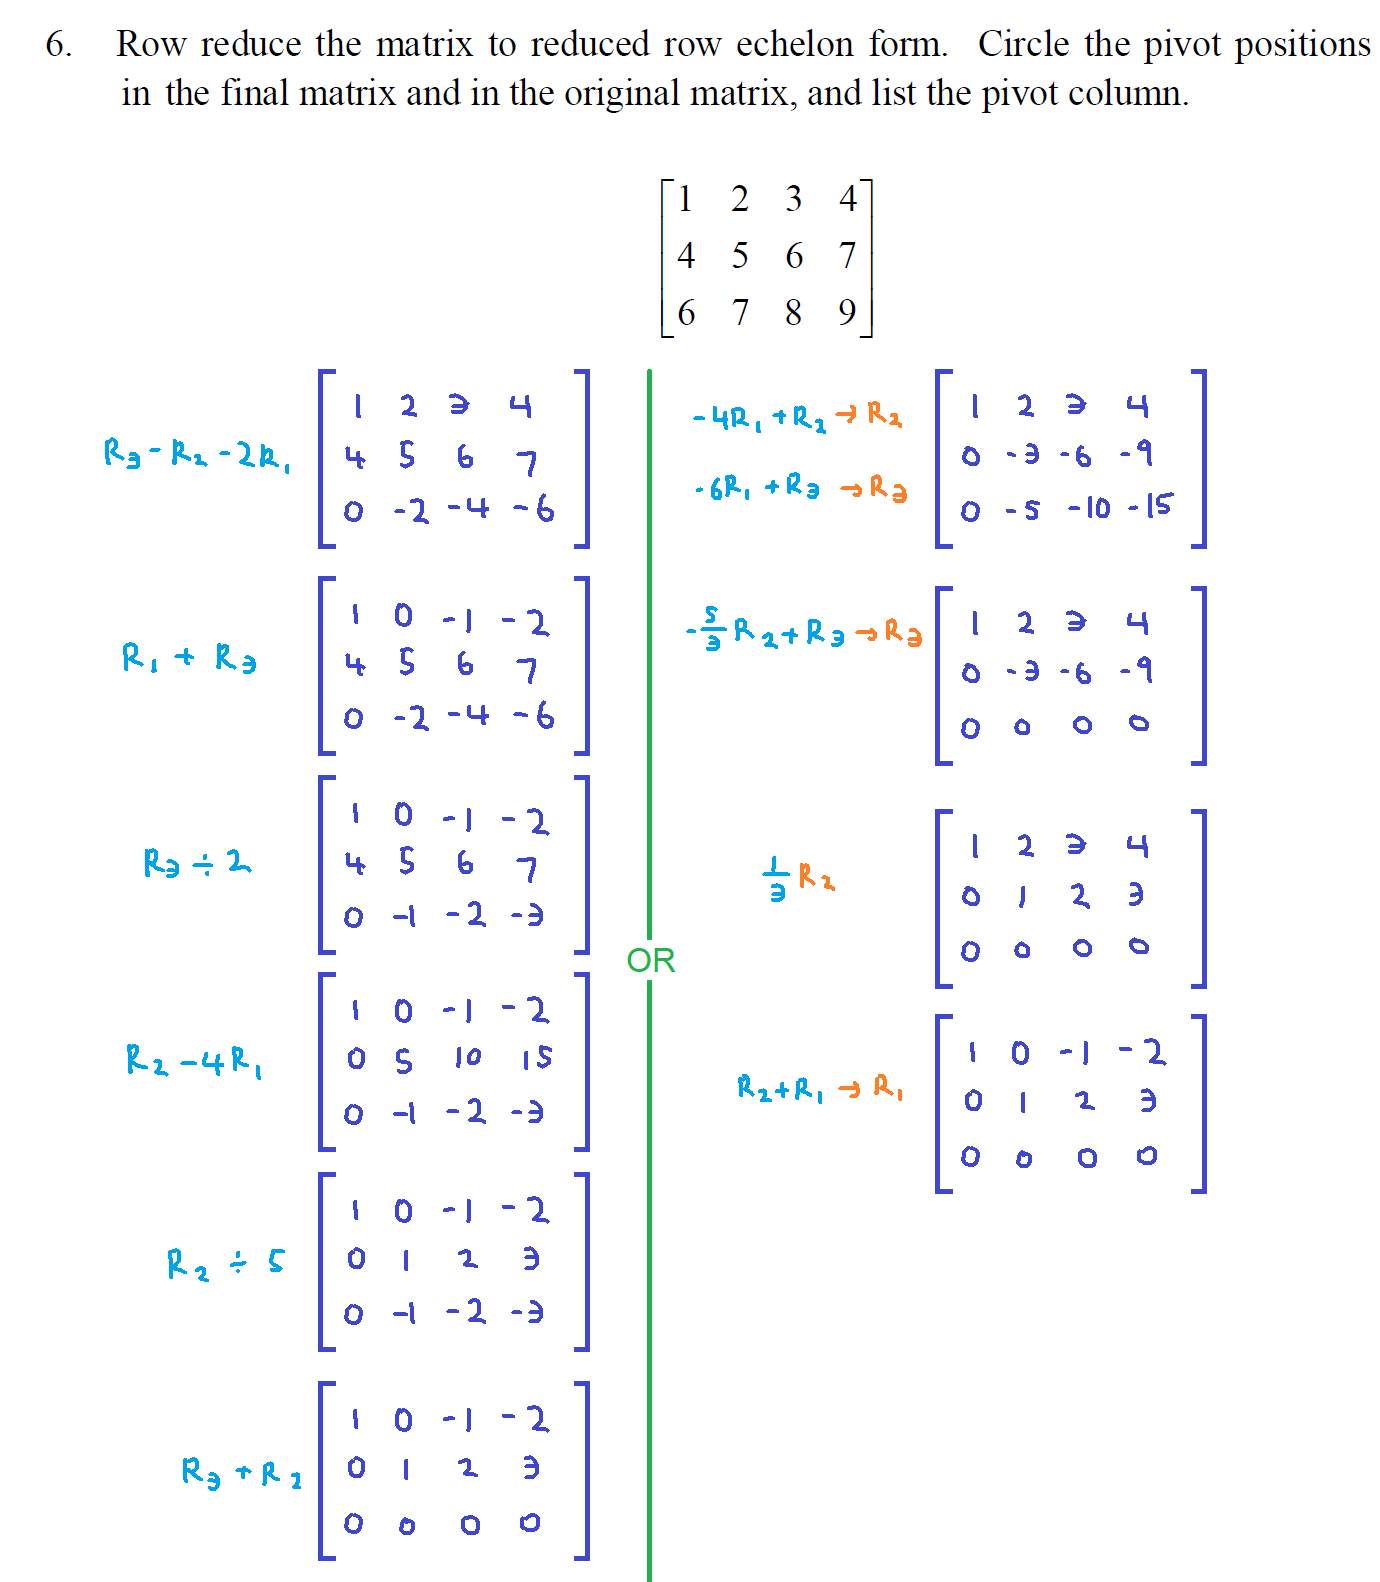 6. Row reduce the matrix to reduced row echelon form. Circle the pivot positions
in the final matrix and in the original matrix, and list the pivot column.
1 2 3 4
4 5 6 7
6 7 8 9
R3 - R2 - 2R1
1 2 3 4
4 5 6 7
0 -2 -4 -6
R1 + R3
1 0 -1 -2
4 5 6 7
0 -2 -4 -6
R3 ÷ 2
1 0 -1 -2
4 5 6 7
0 -1 -2 -3
R2 - 4R1
1 0 -1 -2
0 5 10 15
0 -1 -2 -3
R2 ÷ 5
1 0 -1 -2
0 1 2 3
0 -1 -2 -3
R3 + R2
1 0 -1 -2
0 1 2 3
0 0 0 0
OR
-4R1 + R2 → R2
-6R1 + R3 → R3
1 2 3 4
0 -3 -6 -9
0 -5 -10 -15
-5/3 R2 + R3 → R3
1 2 3 4
0 -3 -6 -9
0 0 0 0
1/3 R2
1 2 3 4
0 1 2 3
0 0 0 0
R2 + R1 → R1
1 0 -1 -2
0 1 2 3
0 0 0 0